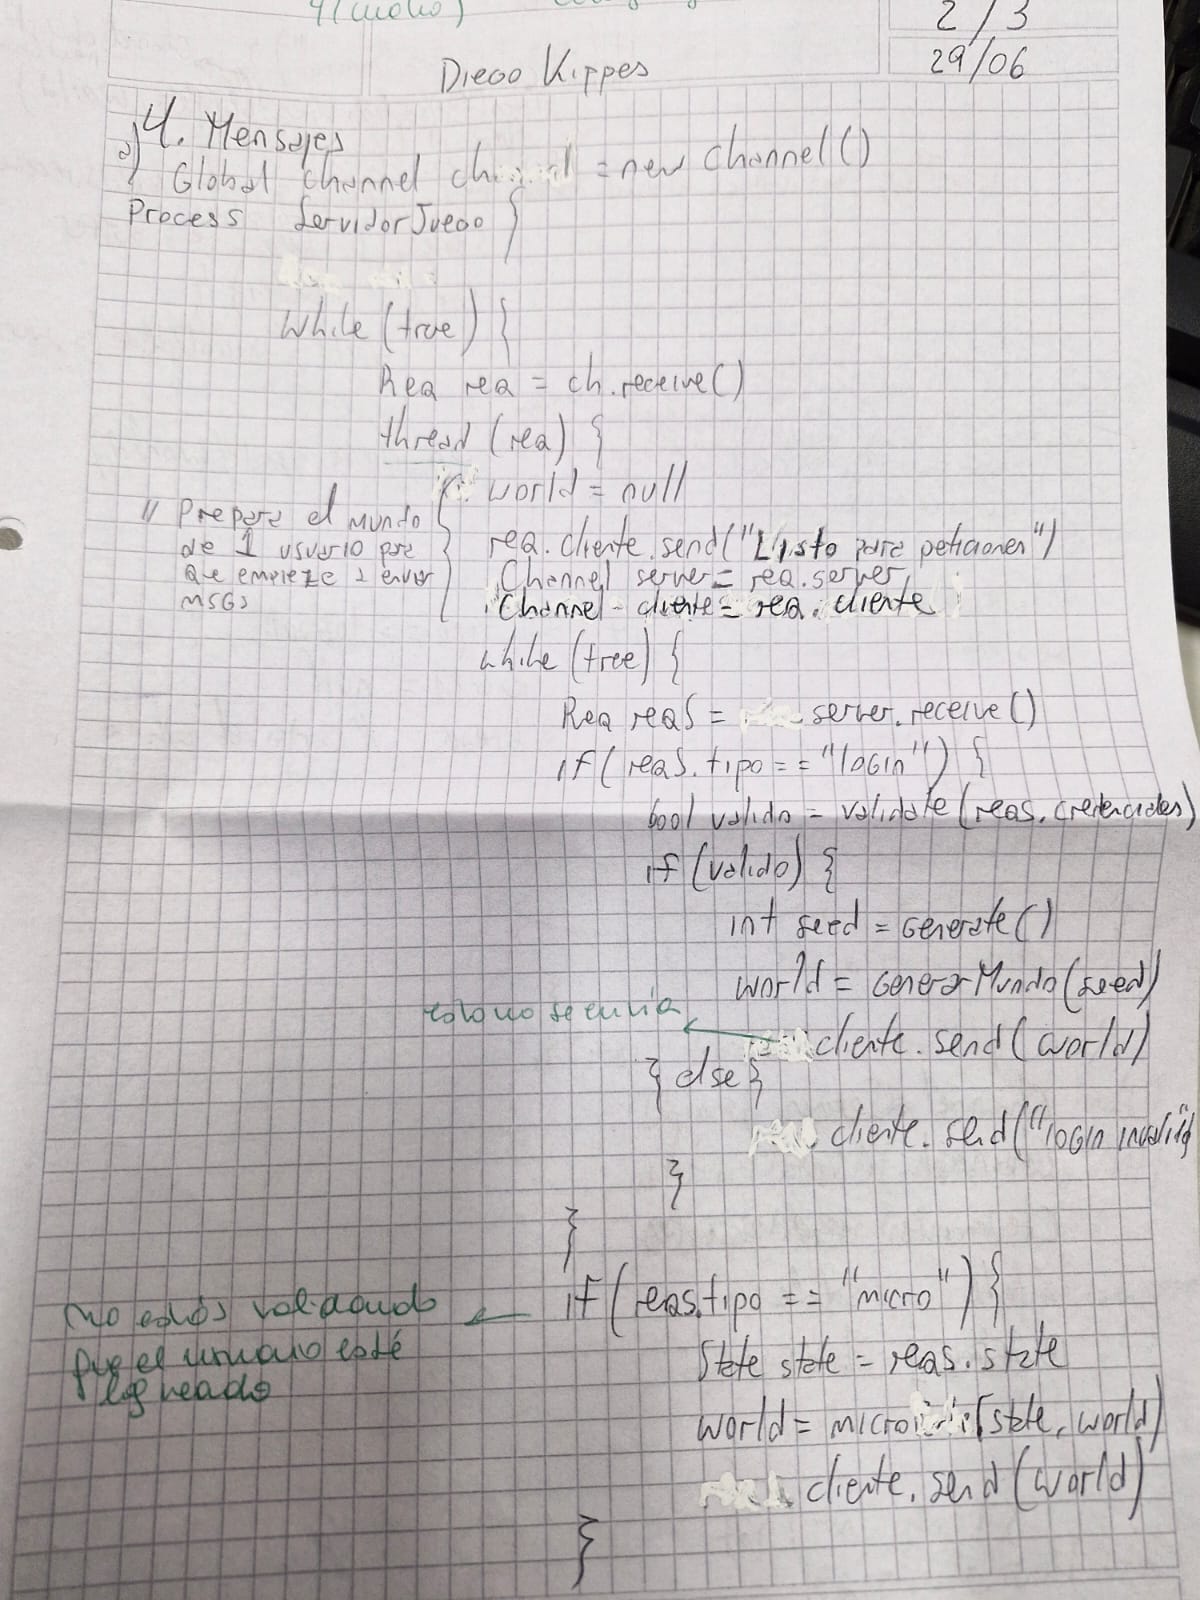 2/3
29/06
Diego Kippes
4. Mensajes
a) Global channel ch = new Channel()
Process ServidorJuego {
while (true) {
Req req = ch.receive()
thread (req) {
world = null
// Prepara el mundo
de 1 usuario para
que empieze a enviar
MSGs
req.cliente.send("Listo para peticiones")
Channel server = req.server
Channel cliente = req.cliente
while (true) {
Req reqS = server.receive()
if (reqS.tipo == "login") {
bool valido = validate(reqS.credenciales)
if (valido) {
int seed = Generate()
world = GenerarMundo(seed)
esto no se envía
cliente.send(world)
} else {
cliente.send("login invalid
}
}
if (reqS.tipo == "micro") {
no estás validando
que el usuario esté
logueado
State state = reqS.state
world = micro (state, world)
cliente.send(world)
}